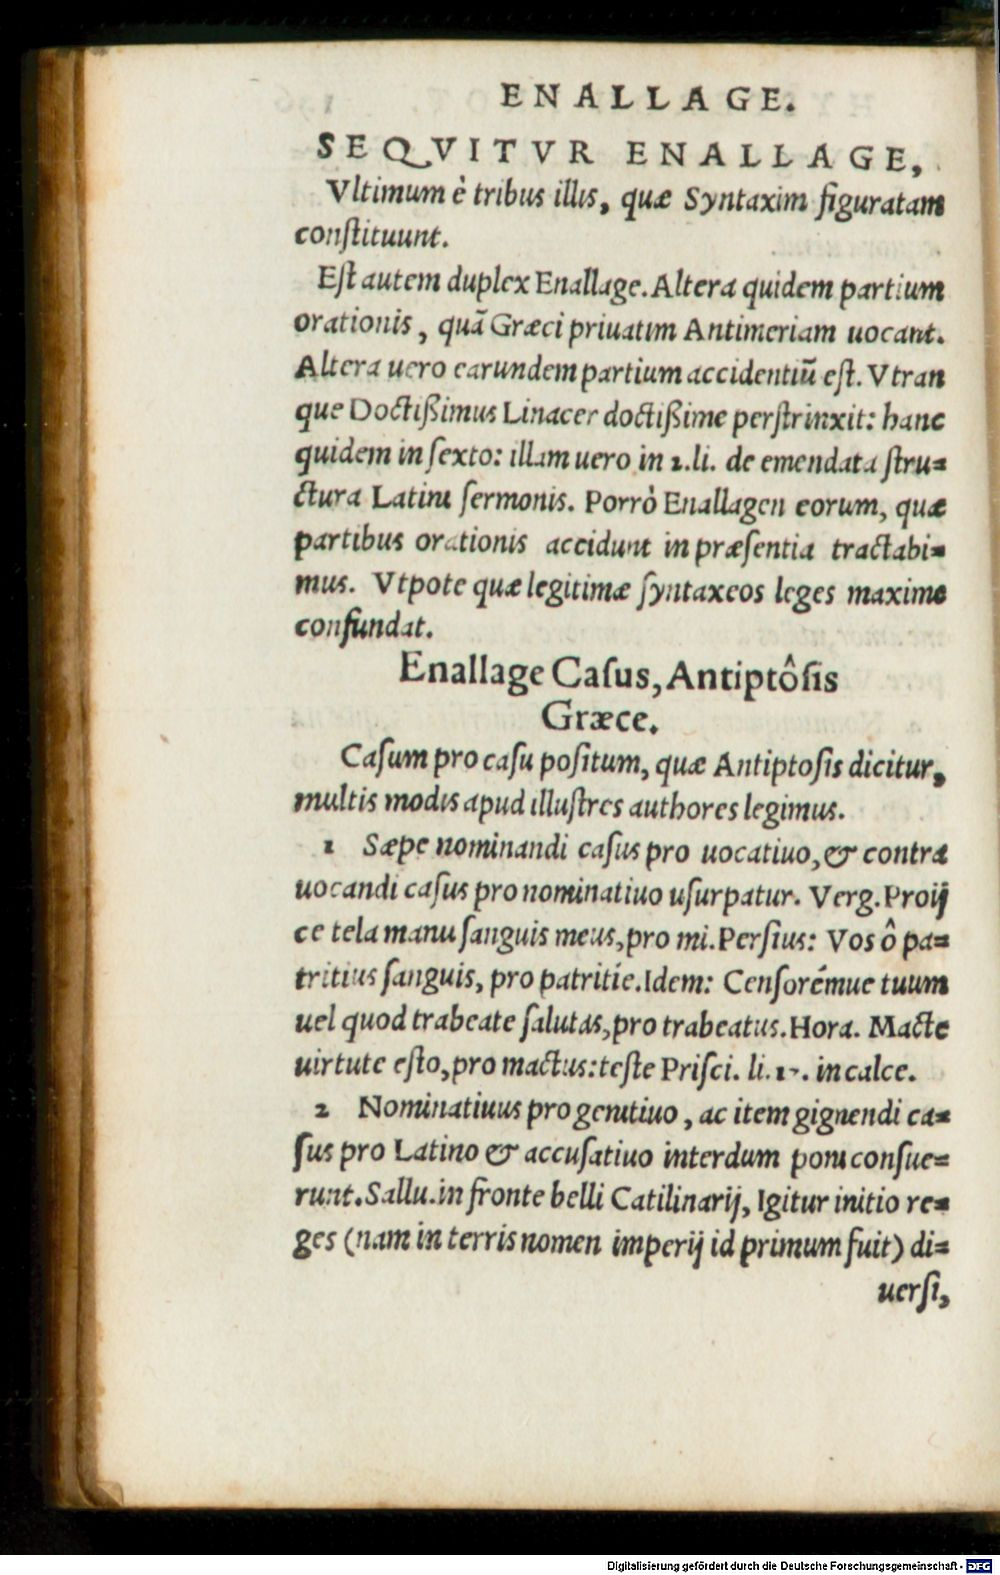 ENALLAGE.
SEQVITVR ENALLAGE,
Vltimum è tribus illis, quæ Syntaxim figuratam
conſtituunt.
Eſt autem duplex Enallage. Altera quidem partium
orationis, quã Græci priuatim Antimeriam uocant.
Altera uero earundem partium accidentiũ eſt. Vtran
que Doctißimus Linacer doctißime perſtrinxit: hanc
quidem in ſexto: illam uero in 2. li. de emendata ſtru=
ctura Latini ſermonis. Porrò Enallagen eorum, quæ
partibus orationis accidunt in præſentia tractabi=
mus. Vtpote quæ legitimæ ſyntaxeos leges maxime
confundat.
Enallage Caſus, Antiptôſis
Græce.
Caſum pro caſu poſitum, quæ Antiptoſis dicitur,
multis modis apud illuſtres authores legimus.
1 Sæpe nominandi caſus pro uocatiuo, & contra
uocandi caſus pro nominatiuo uſurpatur. Verg. Proij
ce tela manu ſanguis meus, pro mi. Perſius: Vos ô pa=
tritius ſanguis, pro patritie. Idem: Cenſorémue tuum
uel quod trabeate ſalutas, pro trabeatus. Hora. Macte
uirtute eſto, pro mactus: teſte Priſci. li. 17. in calce.
2 Nominatiuus pro genitiuo, ac item gignendi ca=
ſus pro Latino & accuſatiuo interdum poni conſue=
runt. Sallu. in fronte belli Catilinarij, Igitur initio re=
ges (nam in terris nomen imperij id primum fuit) di=
uerſi,
Digitalisierung gefördert durch die Deutsche Forschungsgemeinschaft - DFG